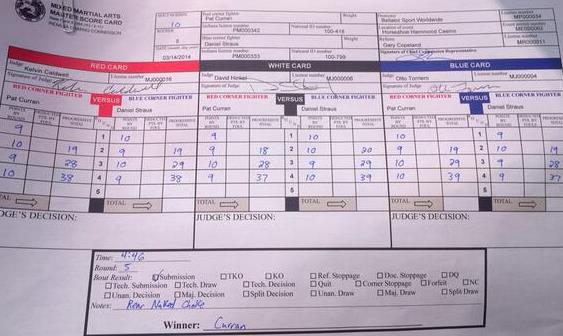 MIXED MARTIAL ARTS
MASTER SCORE CARD
10
Red corner fighter
Pat Curran
Weight
Promoter
Bellator Sport Worldwide
License number
MP000034
Indiana license number
MP000342
National ID number
100-416
Location of event
Horseshoe Hammond Casino
ROUNDS
5
Blue corner fighter
Daniel Straus
Weight
Referee
Gary Copeland
License number
MR000011
03/14/2014
Indiana license number
MP000333
National ID number
100-799
Signature of Chief Commission Representative
RED CARD
WHITE CARD
BLUE CARD
Judge
Kelvin Caldwell
License number
MJ000016
Judge
David Hinkel
License number
MJ000006
Judge
Otto Torriero
License number
MJ000004
Signature of Judge
Signature of Judge
RED CORNER FIGHTER
VERSUS
BLUE CORNER FIGHTER
RED CORNER FIGHTER
VERSUS
BLUE CORNER FIGHTER
RED CORNER FIGHTER
VERSUS
BLUE CORNER FIGHTER
Pat Curran
Daniel Straus
Pat Curran
Daniel Straus
Pat Curran
Daniel Straus
9 1 10 9 1 10 10 1 9
10 19 2 9 19 9 18 2 10 20 9 19 2 10 19
9 28 3 10 29 10 28 3 9 29 10 29 3 9 28
10 38 4 9 38 9 37 4 10 39 10 39 4 9 37
5 5 5
TOTAL TOTAL TOTAL TOTAL TOTAL
JUDGE'S DECISION:
JUDGE'S DECISION:
JUDGE'S DECISION:
Time: 4:46
Round: 5
Bout Result: Submission TKO KO Ref. Stoppage Doc. Stoppage DQ
Tech. Submission Tech. Draw Tech. Decision Quit Corner Stoppage Forfeit NC
Unan. Decision Maj. Decision Split Decision Unan. Draw Maj. Draw Split Draw
Notes: Rear Naked Choke
Winner: Curran